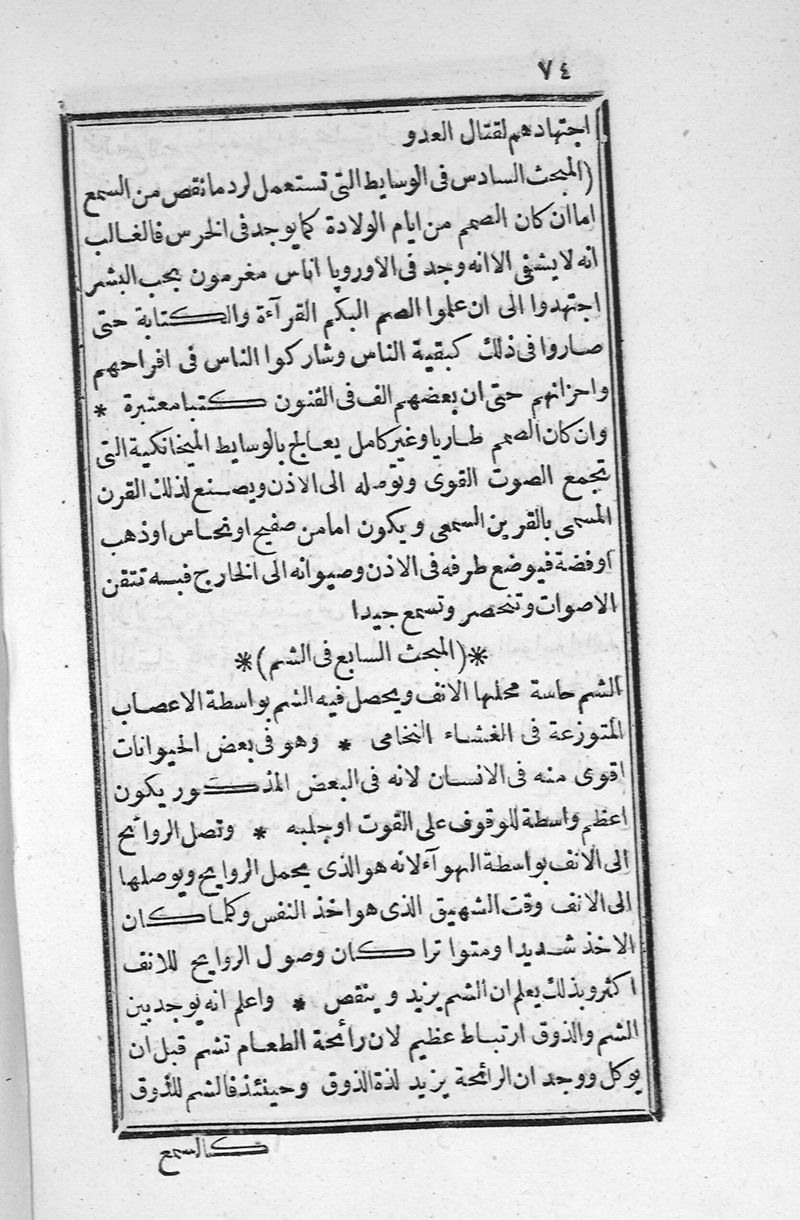 ٧٤
اجتهادهم لقتال العدو
(المبحث السادس فى الوسايط التى تستعمل لرد مانقص من السمع
اماان كان الصمم من ايام الولادة كمايوجد فى الخرس فالغالب
انه لايشفى الاانه وجد فى الاوروپا اناس مغرمون بحب البشر
اجتهدوا الى ان علموا الصم البكم القرآءة والكتابة حتى
صاروا فى ذلك كبقية الناس وشاركوا الناس فى افراحهم
واحزانهم حتى ان بعضهم الف فى الفنون كتبامعتبرة *
وان كان الصمم طاريا وغير كامل يعالج بالوسايط الميخانكية التى
تجمع الصوت القوى وتوصله الى الاذن ويصنع لذلك القرن
المسمى بالقرين السمعى ويكون امامن صفيح اونحاس اوذهب
اوفضة فيوضع طرفه فى الاذن وصيوانه الى الخارج فبه تتقن
الاصوات وتنحصر وتسمع جيدا
*(المبحث السابع فى الشم)*
الشم حاسة محلها الانف ويحصل فيه الشم بواسطة الاعصاب
المتوزعة فى الغشاء النخامى * وهو فى بعض الحيوانات
اقوى منه فى الانسان لانه فى البعض المذكور يكون
اعظم واسطة للوقوف على القوت اوجلبه * وتصل الروائح
الى الانف بواسطة الهوآء لانه هو الذى يحمل الروايح ويوصلها
الى الانف وقت الشهيق الذى هو اخذ النفس وكلما كان
الاخذ شديدا ومتواترا كان وصول الروايح للانف
اكثر وبذلك يعلم ان الشم يزيد وينقص * واعلم انه يوجد بين
الشم والذوق ارتباط عظيم لان رائحة الطعام تشم قبل ان
يوكل ووجد ان الرائحة يزيد لذة الذوق وحينئذ فالشم للذوق
كالسمع